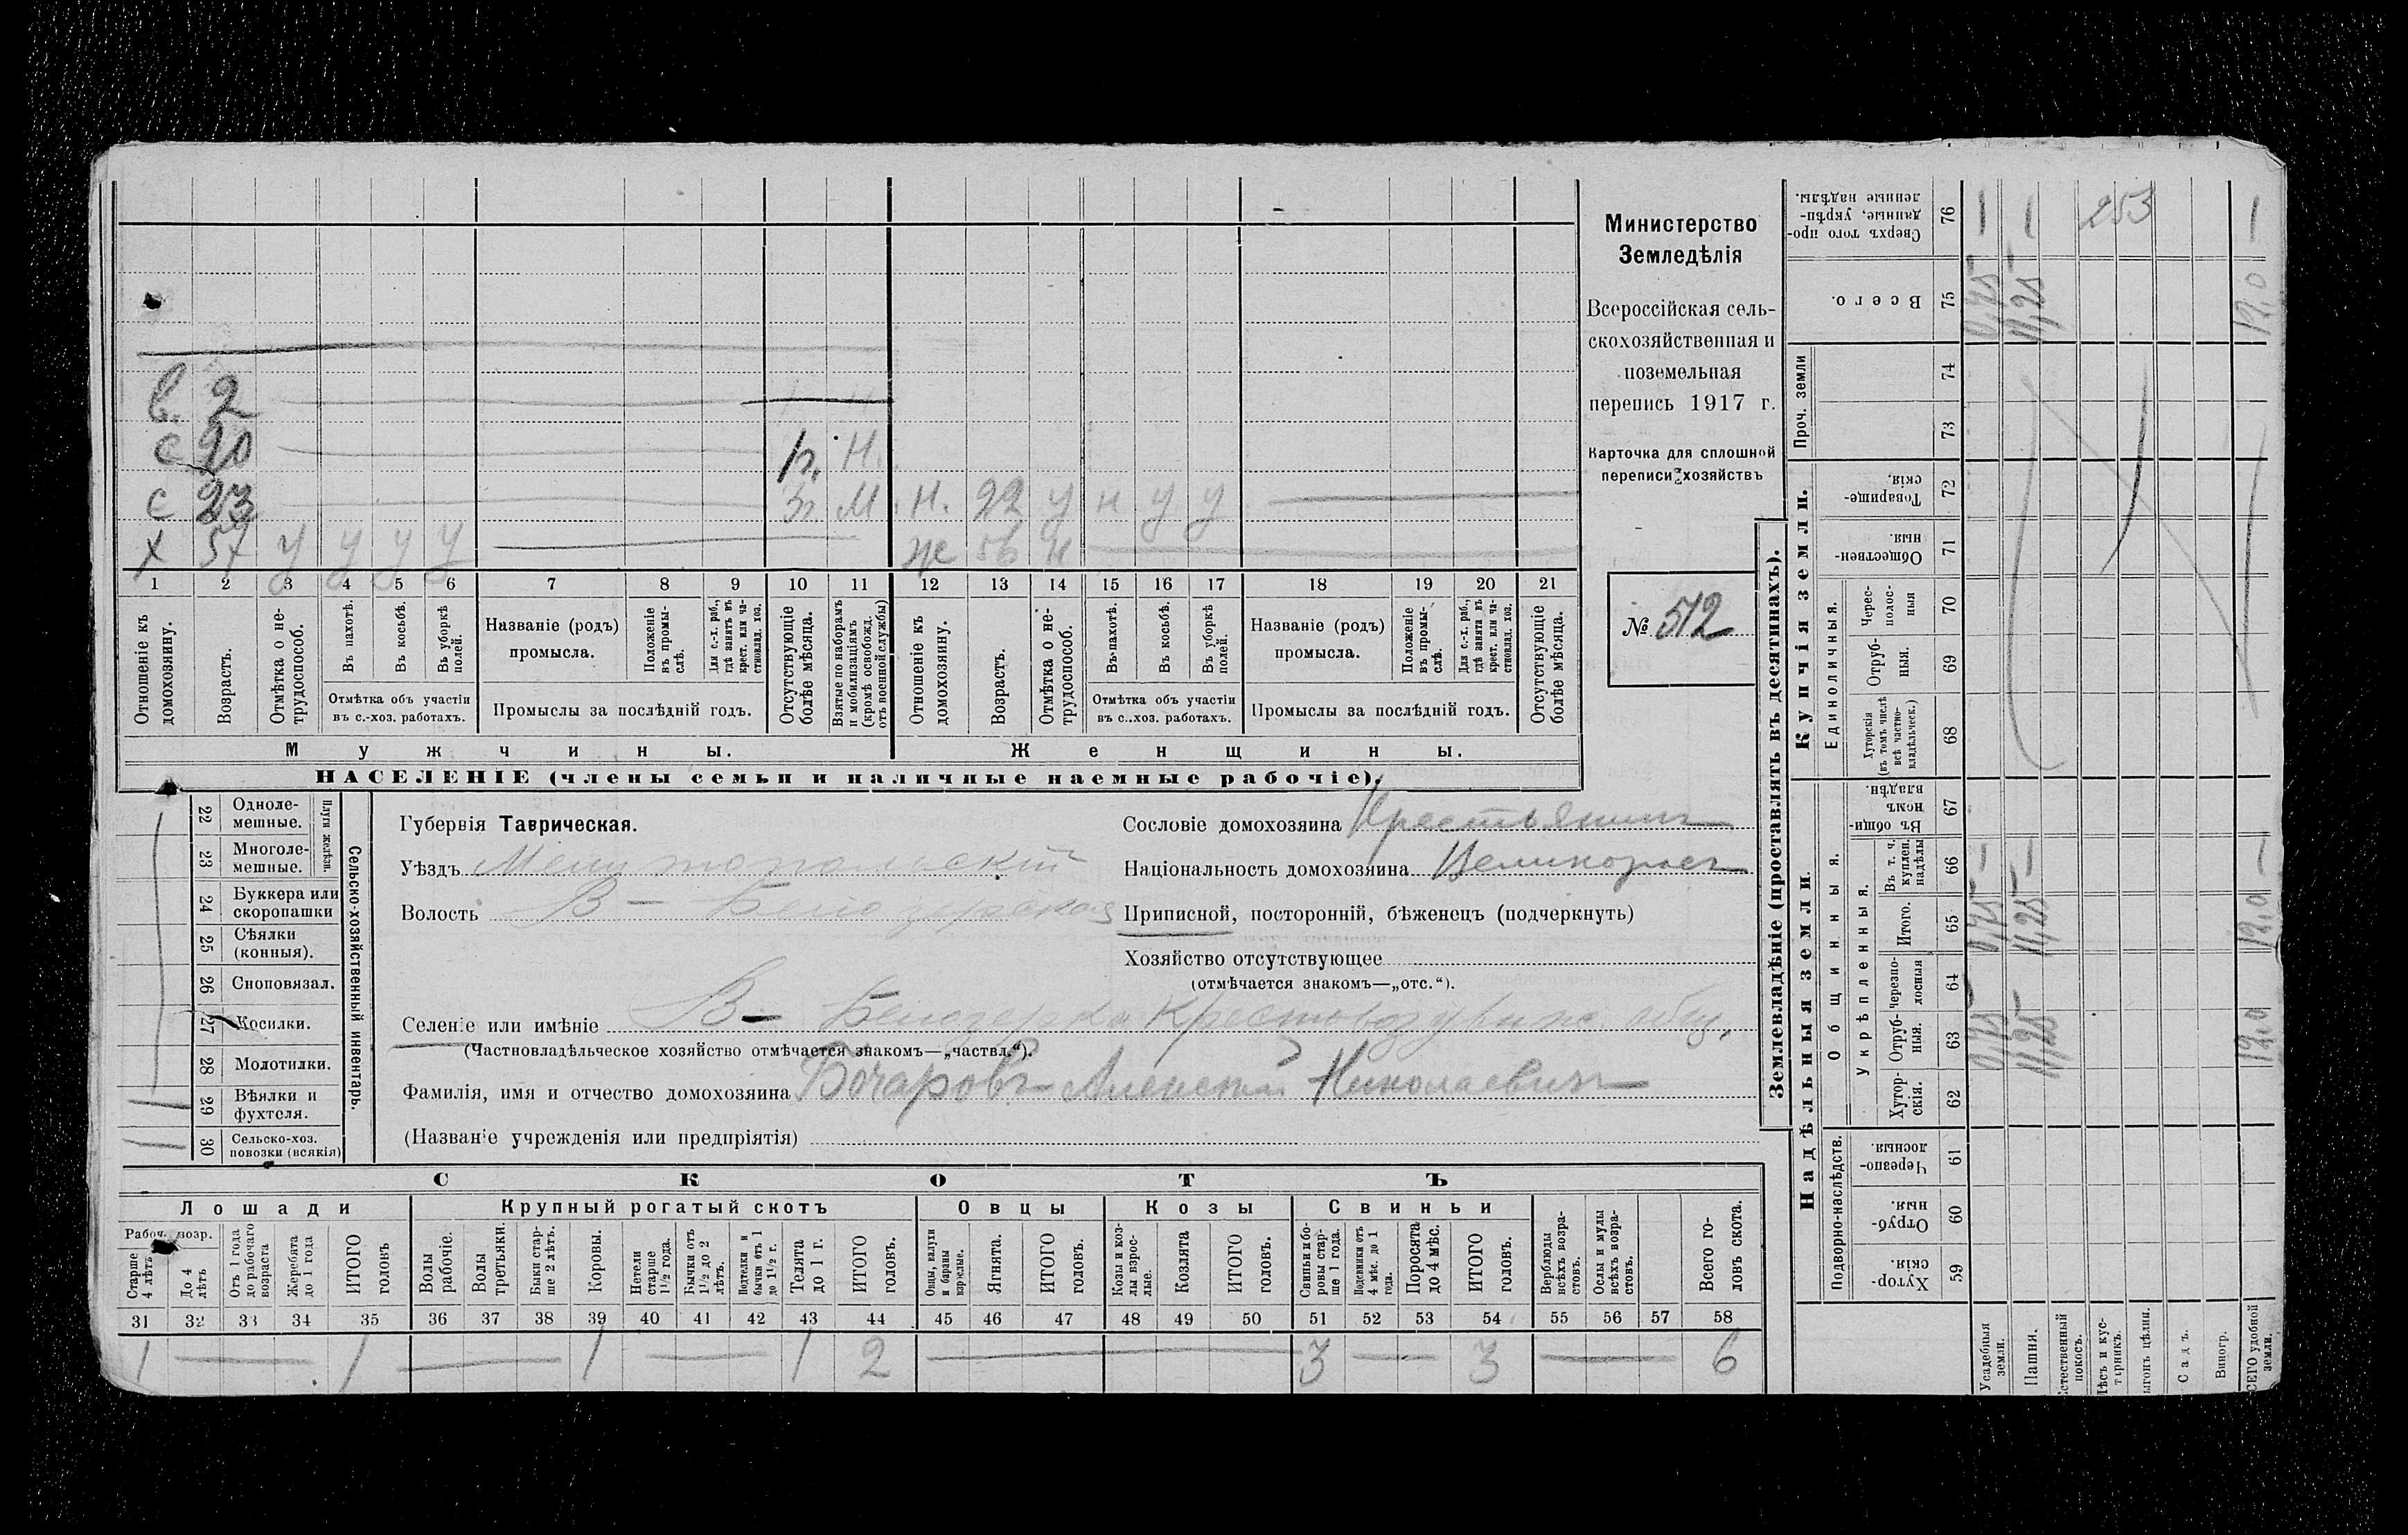 Министерство
Земледѣлія
Всероссійская сель-
скохозяйственная и
поземельная
перепись 1917 г.
Карточка для сплошной
переписи хозяйствъ
№ 512
в. 2
с 20 р. Н.
с 23 М Н. 22 у н у у
х 57 у у у у ж 56 н
1 2 3 4 5 6 7 8 9 10 11 12 13 14 15 16 17 18 19 20 21
Отношеніе къ домохозяину.
Возрастъ.
Отмѣтка о не-трудоспособ.
Въ пахотѣ.
Въ косьбѣ.
Въ уборкѣ полей.
Отмѣтка объ участіи
въ с.-хоз. работахъ.
Названіе (родъ)
промысла.
Положеніе въ промы-слѣ.
Для с.-х. раб., гдѣ занятъ въ крест. или ча-стновлад. хоз.
Промыслы за послѣдній годъ.
Отсутствующіе болѣе мѣсяца.
Взятые по наборамъ и мобилизаціямъ (кромѣ освобожд. отъ военной службы)
Отношеніе къ домохозяину.
Возрастъ.
Отмѣтка о не-трудоспособ.
Въ пахотѣ.
Въ косьбѣ.
Въ уборкѣ полей.
Отмѣтка объ участіи
въ с.-хоз. работахъ.
Названіе (родъ)
промысла.
Положеніе въ промы-слѣ.
Для с.-х. раб., гдѣ занята въ крест. или ча-стновлад. хоз.
Промыслы за послѣдній годъ.
Отсутствующіе болѣе мѣсяца.
Мужчины. Женщины.
НАСЕЛЕНІЕ (члены семьи и наличные наемные рабочіе).
Сельско-хозяйственный инвентарь.
Плуги желѣзн.
22 Одноле-мешные.
23 Многоле-мешные.
24 Буккера или скоропашки
25 Сѣялки (конныя).
26 Сноповязал.
27 Косилки.
28 Молотилки.
1 29 Вѣялки и фухтеля.
1 30 Сельско-хоз. повозки (всякія)
Губернія Таврическая.
Уѣздъ Мелитопольскій
Волость В-Белозерская
Селеніе или имѣніе В-Белозерка
(Частновладѣльческое хозяйство отмѣчается знакомъ—„частвл.“).
Фамилія, имя и отчество домохозяина Бочаровъ Алексей Николаевичъ
(Названіе учрежденія или предпріятія)
Сословіе домохозяина Крестьянинъ
Національность домохозяина Великоросъ
Приписной, посторонній, бѣженецъ (подчеркнуть)
Хозяйство отсутствующее
(отмѣчается знакомъ—„отс.“).
СКОТЪ
Лошади Крупный рогатый скотъ Овцы Козы Свиньи
Рабоч. возр.
Старше 4 лѣтъ
До 4 лѣтъ
Отъ 1 года до рабочаго возраста
Жеребята до 1 года
ИТОГО головъ
Волы рабочіе.
Волы третьяки.
Быки стар-ше 2 лѣтъ.
Коровы.
Нетели старше 1½ года.
Бычки отъ 1½ до 2 лѣтъ.
Подтелки и бычки отъ 1 до 1½ г.
Телята до 1 г.
ИТОГО головъ.
Овцы, валухи и бараны взрослые.
Ягнята.
ИТОГО головъ.
Козы и коз-лы взрос-лые.
Козлята
ИТОГО головъ.
Свиньи и бо-ровы стар-ше 1 года.
Подсвинки отъ 4 мѣс. до 1 года.
Поросята до 4 мѣс.
ИТОГО головъ.
Верблюды всѣхъ возра-стовъ.
Ослы и мулы всѣхъ возра-стовъ.
Всего го-ловъ скота.
31 32 33 34 35 36 37 38 39 40 41 42 43 44 45 46 47 48 49 50 51 52 53 54 55 56 57 58
1 — 1 — 1 — 1 2 — 3 — 3 — 6
Землевладѣніе (проставлять въ десятинахъ).
Надѣльныя земли. Купчія земли.
Подворно-наслѣдств.
Общинныя.
Укрѣпленныя.
Единоличныя.
Проч. земли
Хутор-скія. 59
Отруб-ныя. 60
Черезпо-лосныя 61
Хутор-скія. 62
Отруб-ныя. 63
Черезпо-лосныя 64
Итого. 65
Въ т. ч. куплен. надѣлы 66
Въ общин-номъ владѣн. 67
Хуторскія (въ томъ числѣ всѣ частно-владѣльческ.) 68
Отруб-ныя. 69
Черес-полос-ныя 70
Обществен-ныя. 71
Товарище-скія. 72
73
74
Всего. 75
Сверхъ того про-данные, укрѣп-ленные надѣлы. 76
Усадебныя земли. 0,75 0,75 — 0,75 —
Пашня. 11,25 11,25 — 11,25 —
Естественный покосъ.
Лѣсъ и кус-тарникъ. 253
Выгонъ цѣлин.
Садъ.
Виногр.
ВСЕГО удобной земли. 12,0 12,0 — 12,0 —